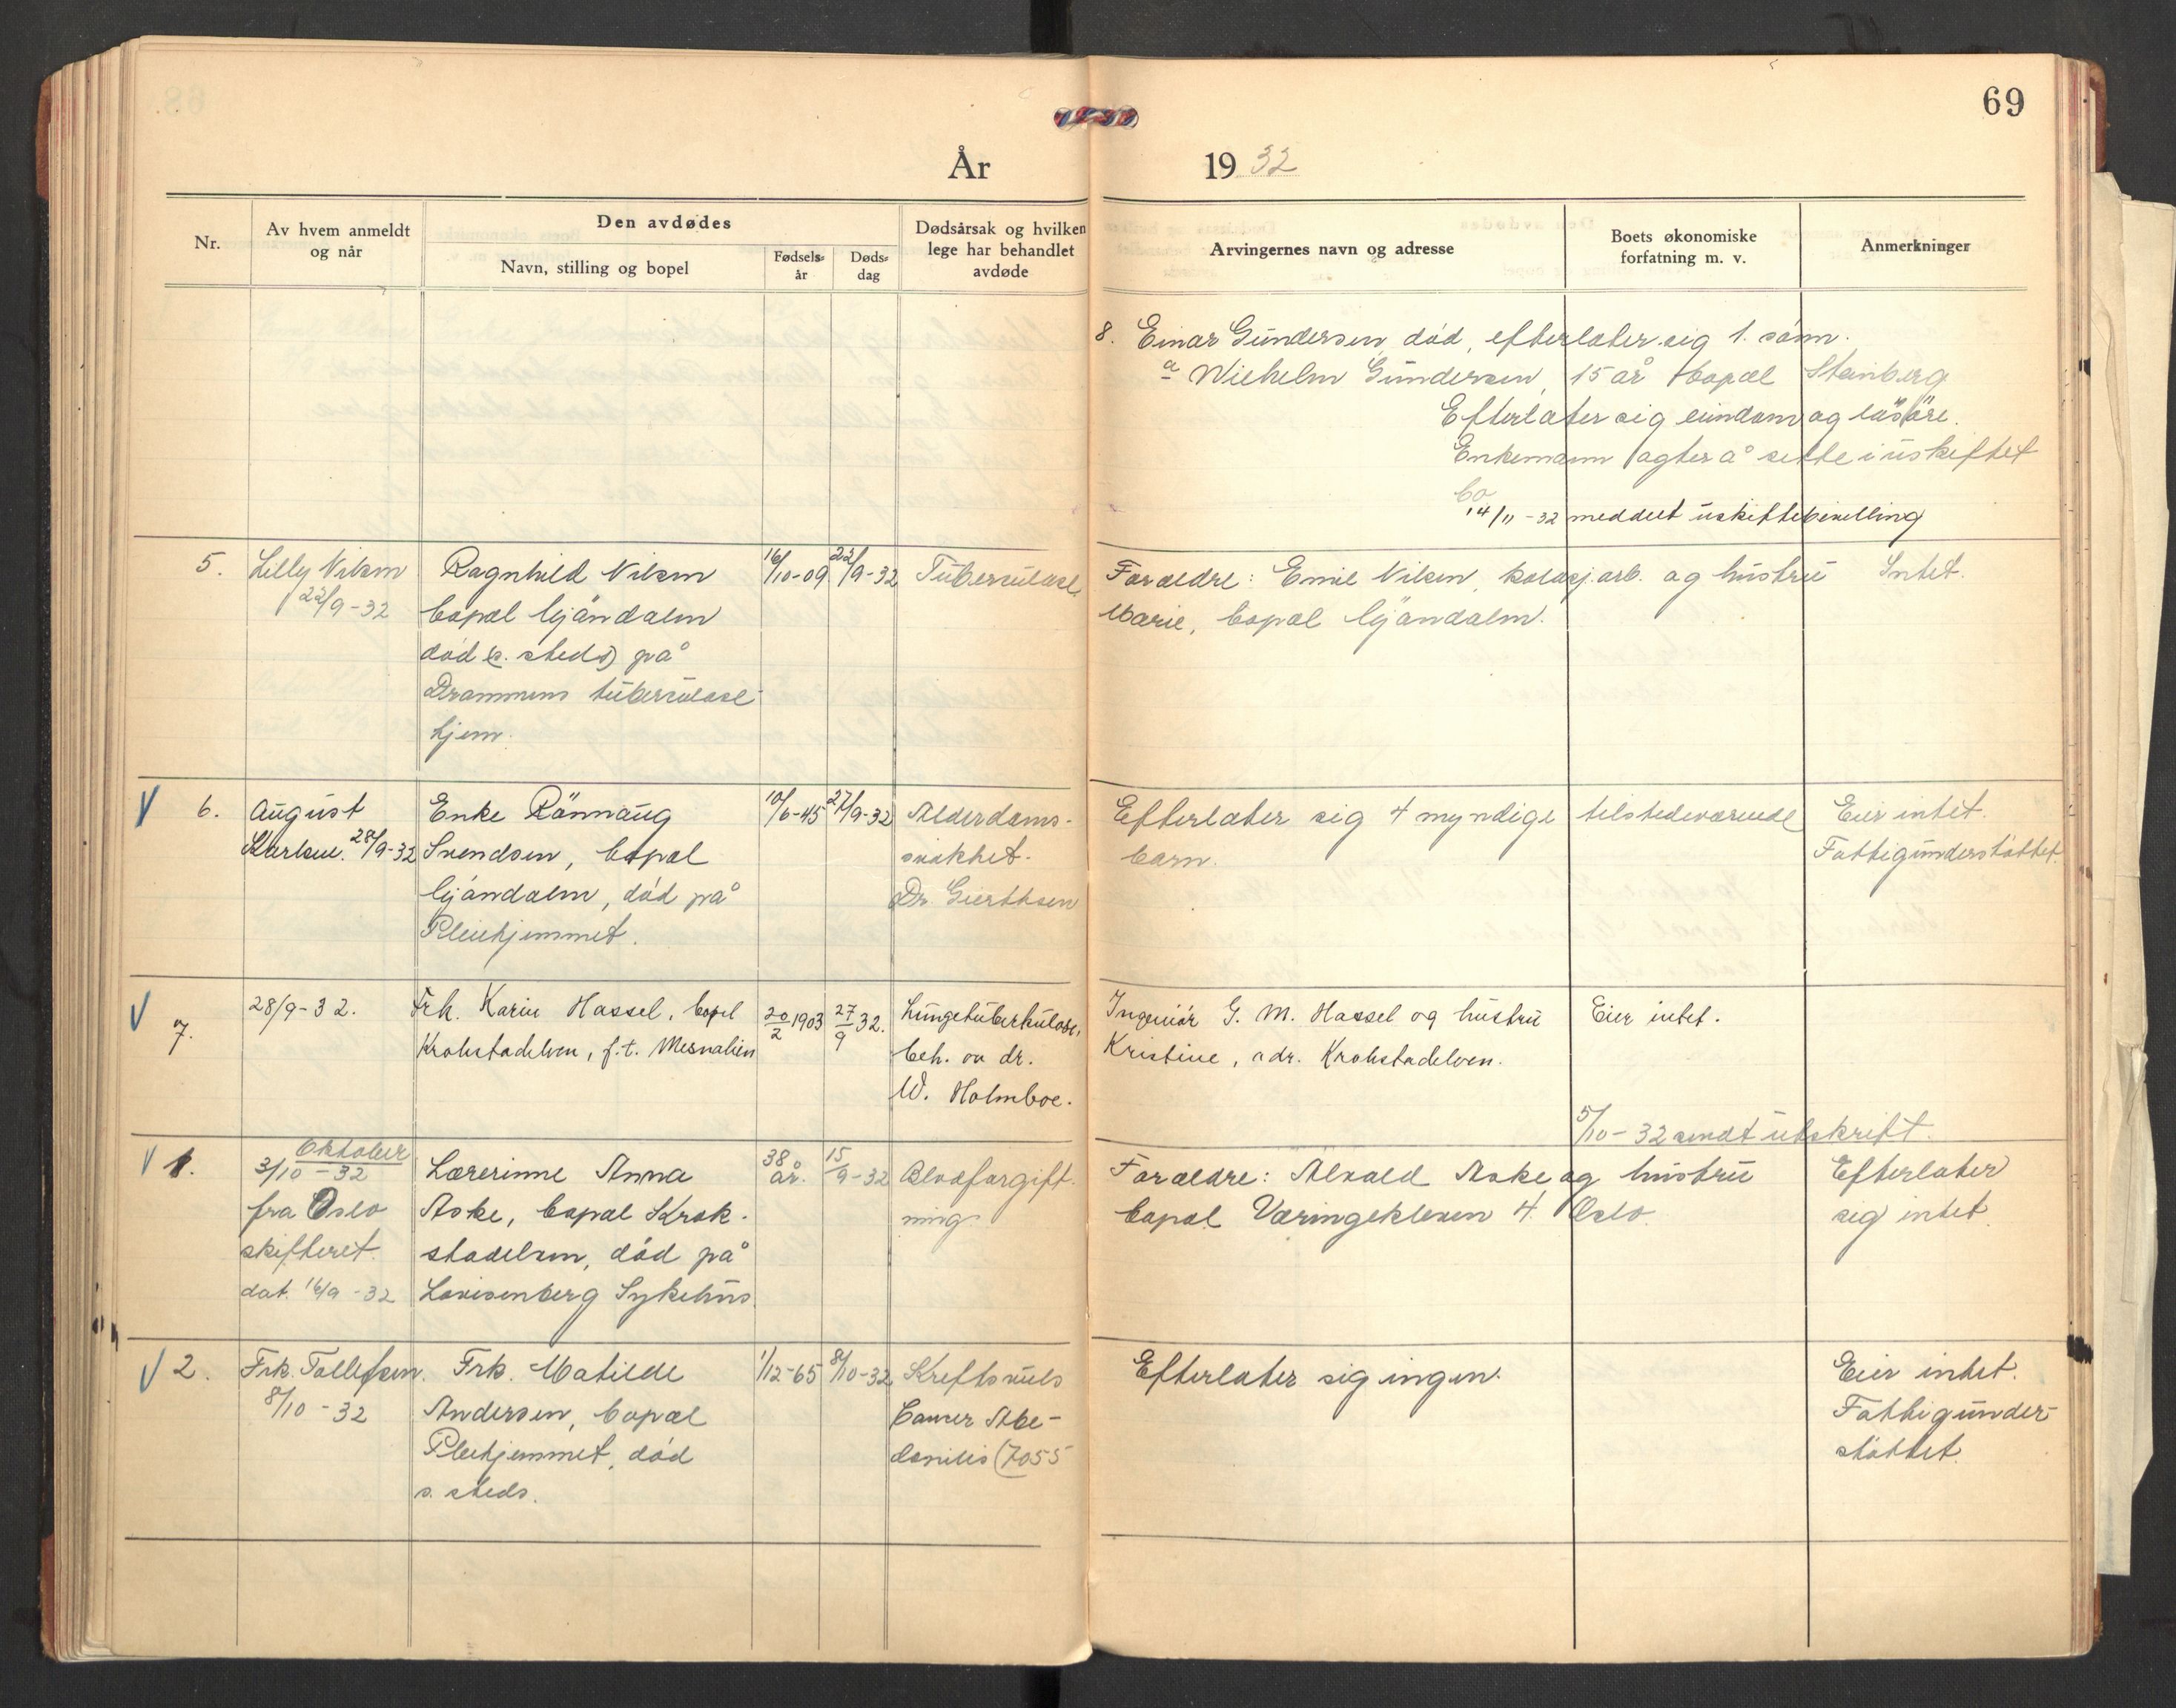 69
År 1932
Nr.
Av hvem anmeldt
og når
Den avdødes
Navn, stilling og bopel
Fødsels-
år
Døds-
dag
Dødsårsak og hvilken
lege har behandlet
avdøde
Arvingernes navn og adresse
Boets økonomiske
forfatning m. v.
Anmerkninger
8. Einar Gundersen, död, efterlater sig 1. sönn.
a Wilhelm Gundersen, 15 år bopæl Steinberg
Efterlater sig eiendom og lösöre.
Enkemann agter å sitte i uskiftet
bo
14/11-32 meddelt uskiftebevilling
5.
Lilly Nilsen
22/9-32
Ragnhild Nilsen
bopæl Mjöndalen
död (s. steds) på
Drammens tuberculose-
hjem.
16/10-09
22/9-32
Tuberculose.
Foreldre: Emil Nilsen, arb. og hustru
Marie, bopæl Mjöndalen.
Intet.
6.
August
Karlsen. 28/9-32
Enke Rönnaug
Svendsen, bopæl
Mjöndalen, död på
Pleiehjemmet.
10/6-45
27/9-32
Alderdoms-
svakhet.
Dr. Gierthsen
Efterlater sig 4 myndige tilstedeværende
barn.
Eier intet.
Fattigunderstöttet.
7.
28/9-32.
Frk. Karin Hassel, bopel
Krokstadelven, f.t. Mesnalien
20/2 1903
27/9 32.
Lungetuberkulose,
beh. av dr.
W. Holmboe.
Ingeniör G. M. Hassel og hustru
Kristine, adr. Krokstadelven.
Eier intet.
5/10-32 sendt utskrift.
Oktober
1.
3/10-32
fra Oslo
skifteret.
dat. 16/9-32
Lærerinne Anna
Aske, bopæl Krok-
stadelven, död på
Lovisenberg Sykehus.
38
år.
15/9-32
Blodforgift-
ning
Foreldre: Alvald Aske og hustru
bopæl Væringekleven 4. Oslo.
Efterlater
sig intet.
2.
Frk. Tollefsen.
8/10-32
Frk. Matilde
Andersen, bopæl
Pleiehjemmet, död
s. steds.
1/12-65
8/10-32
Kreftsvuls
(7055
Efterlater sig ingen.
Eier intet.
Fattigunder-
støttet.